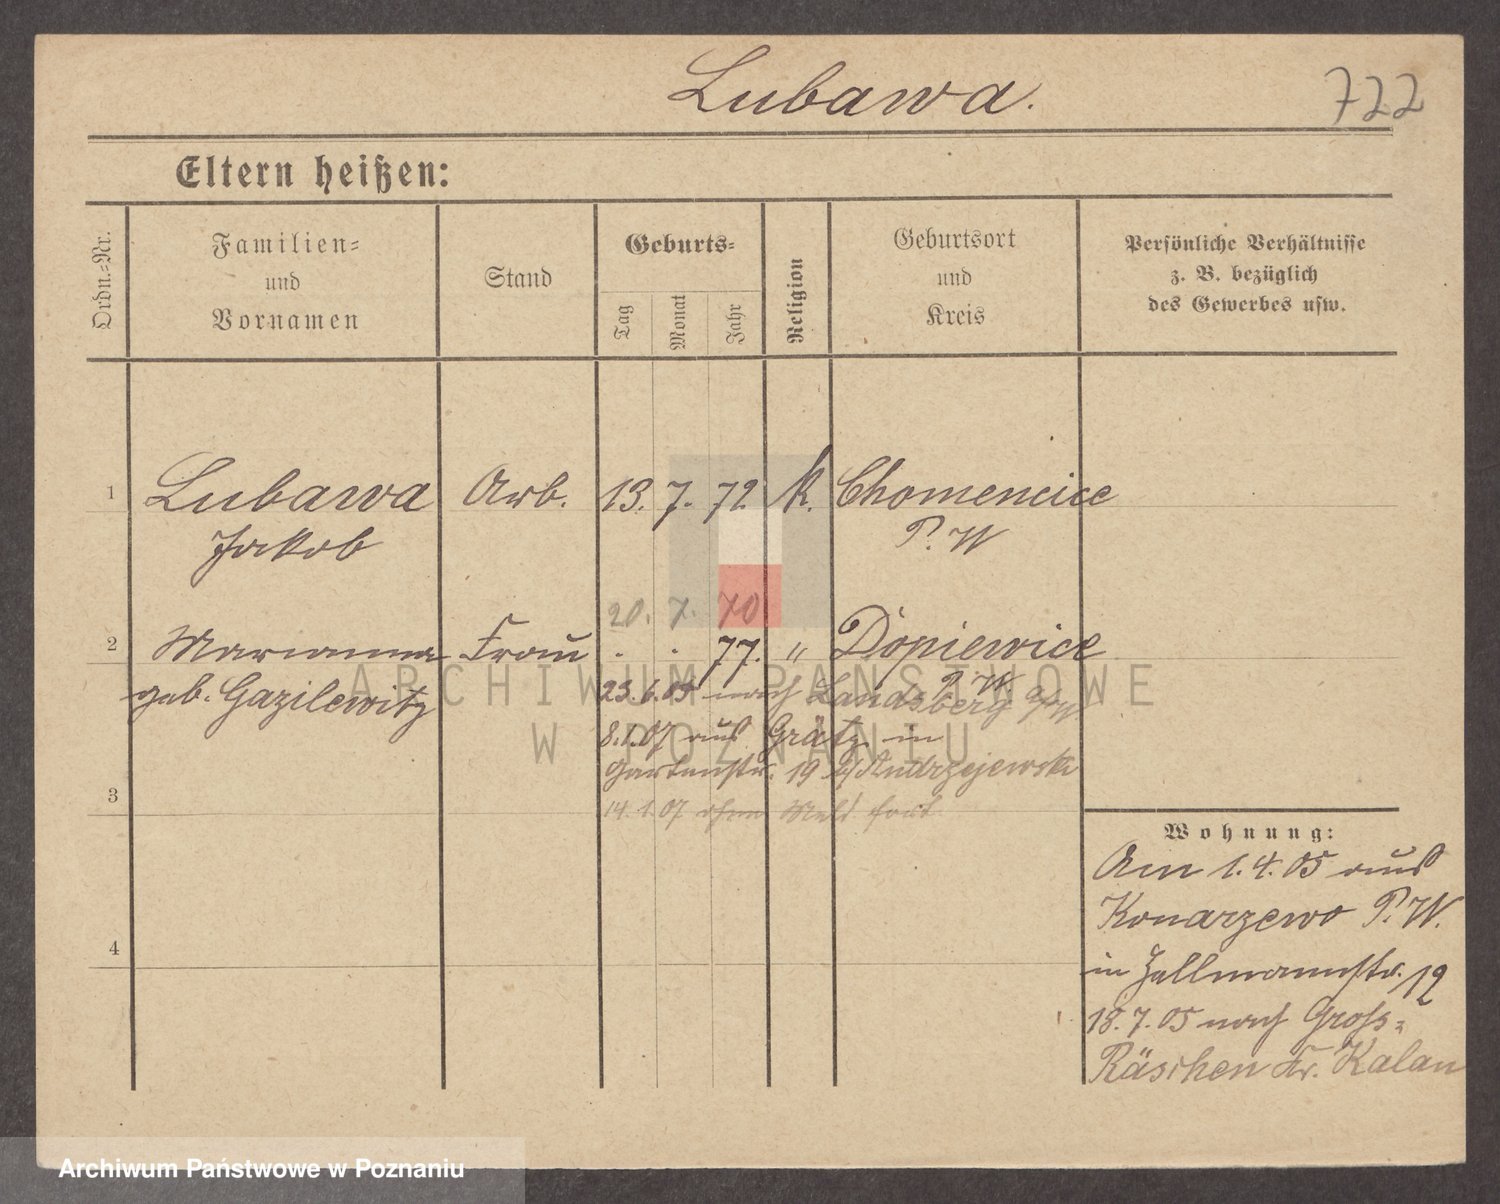 Lubawa.
722
Eltern heißen:
Ordn.-Nr.
Familien-
und
Vornamen
Stand
Geburts-
Tag
Monat
Jahr
Religion
Geburtsort
und
Kreis
Persönliche Verhältnisse
z. B. bezüglich
des Gewerbes usw.
1 Lubawa Arb. 13. 7. 72 k. Chomencice
Jakob P. W
20. 7. 70
2 Marianna Frau . . 77. " Dopiewice
P. W
geb. Gazilewitz 23.6.05 nach Landsberg a/W
8.1.07 aus Grätz in
Gartenstr. 19 b/Andrzejewski
3
14.1.07 ohne Meld fort
4
Wohnung:
Am 1.4.05 aus
Konarzewo P. W.
in Hallmannstr. 12
18.7.05 nach Gross-
Räschen Kr. Kalau
ARCHIWUM PAŃSTWOWE
W POZNANIU
Archiwum Państwowe w Poznaniu